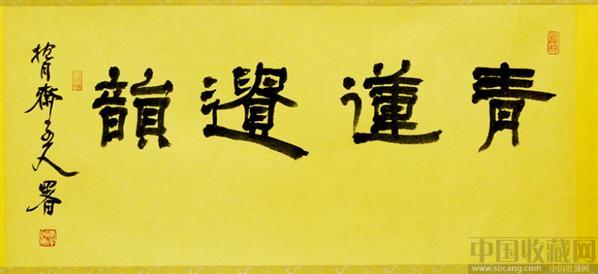 青蓮遺韻
齋主人署
中国收藏网
www.socang.com 中国收藏网